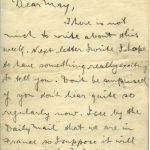 Dear May,
There is not
much to write about this
week. Next letter I write I hope
to have something really exciting
to tell you. Don't be surprised
if you don't hear quite so
regularly now. I see by the
Daily Mail that we are in
France so I suppose it will